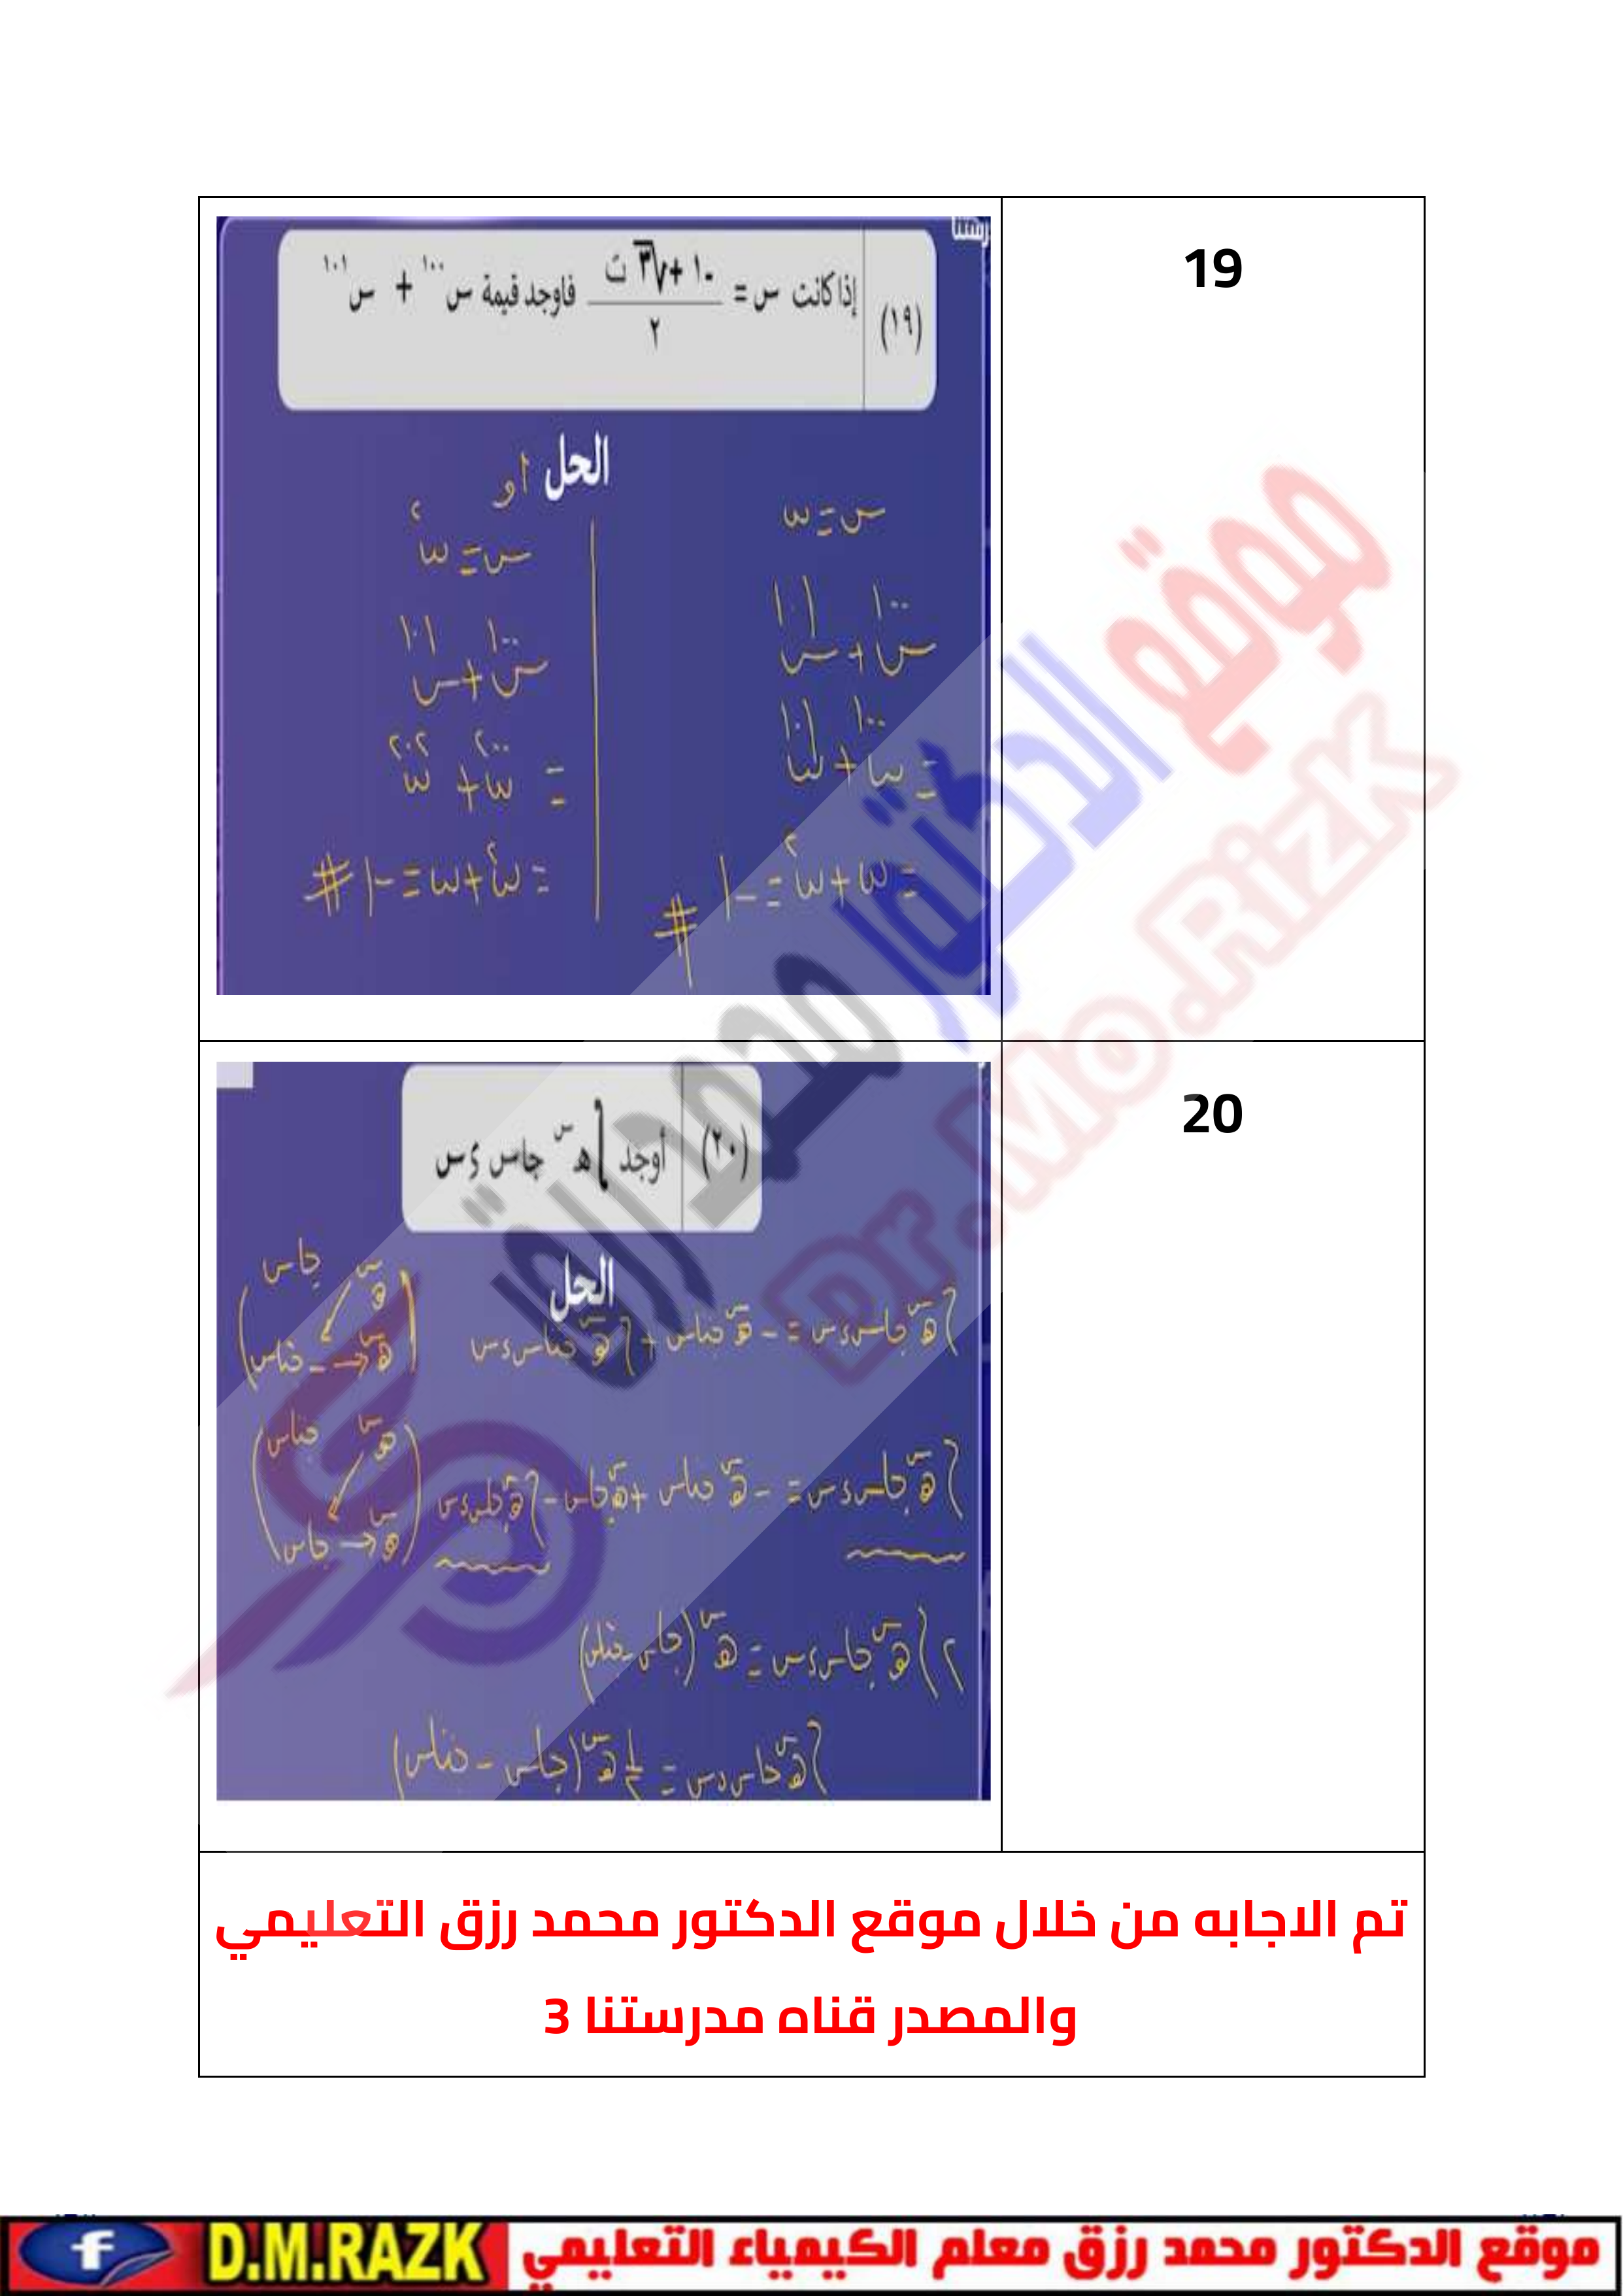 19
(١٩) إذا كانت س = -١ + √٣ ت / ٢ فاوجد قيمة س^١٠٠ + س^١٠١
الحل او
س = ω
س^١٠٠ + س^١٠١
= ω^١٠٠ + ω^١٠١
= ω + ω^٢ = -١ #
س = ω^٢
س^١٠٠ + س^١٠١
= ω^٢٠٠ + ω^٢٠٢
= ω^٢ + ω = -١ #
20
(٢٠) أوجد ∫ هـ^س جاس ء س
الحل
∫ هـ^س جاس ء س = - هـ^س جتاس + ∫ هـ^س جتاس ء س
هـ^س جاس
هـ^س ← - جتاس
∫ هـ^س جاس ء س = - هـ^س جتاس + هـ^س جاس - ∫ هـ^س جاس ء س
هـ^س جتاس
هـ^س ← جاس
٢ ∫ هـ^س جاس ء س = هـ^س (جاس - جتاس)
∫ هـ^س جاس ء س = ١/٢ هـ^س (جاس - جتاس)
موقع الدكتور محمد رزق
Dr.Mo.Rizk
تم الاجابه من خلال موقع الدكتور محمد رزق التعليمي
والمصدر قناه مدرستنا 3
موقع الدكتور محمد رزق معلم الكيمياء التعليمي D.M.RAZK f